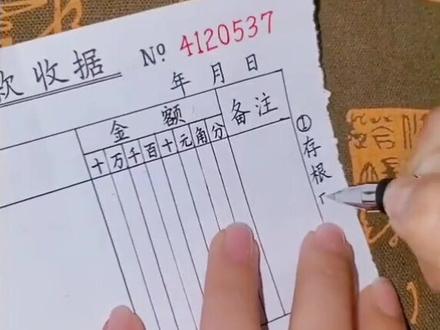 款收据 Nº 4120537
年 月 日
金 额
备注
十万千百十元角分
①存根